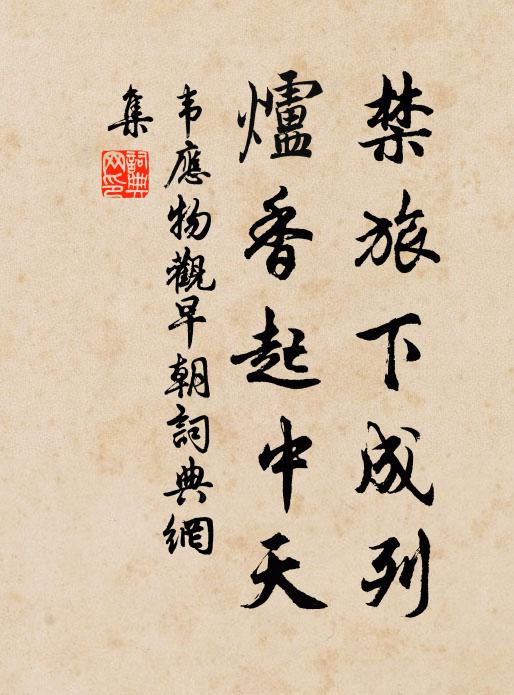 禁旅下成列
爐香起中天
韦應物觀早朝詞典網
集
詞典網印